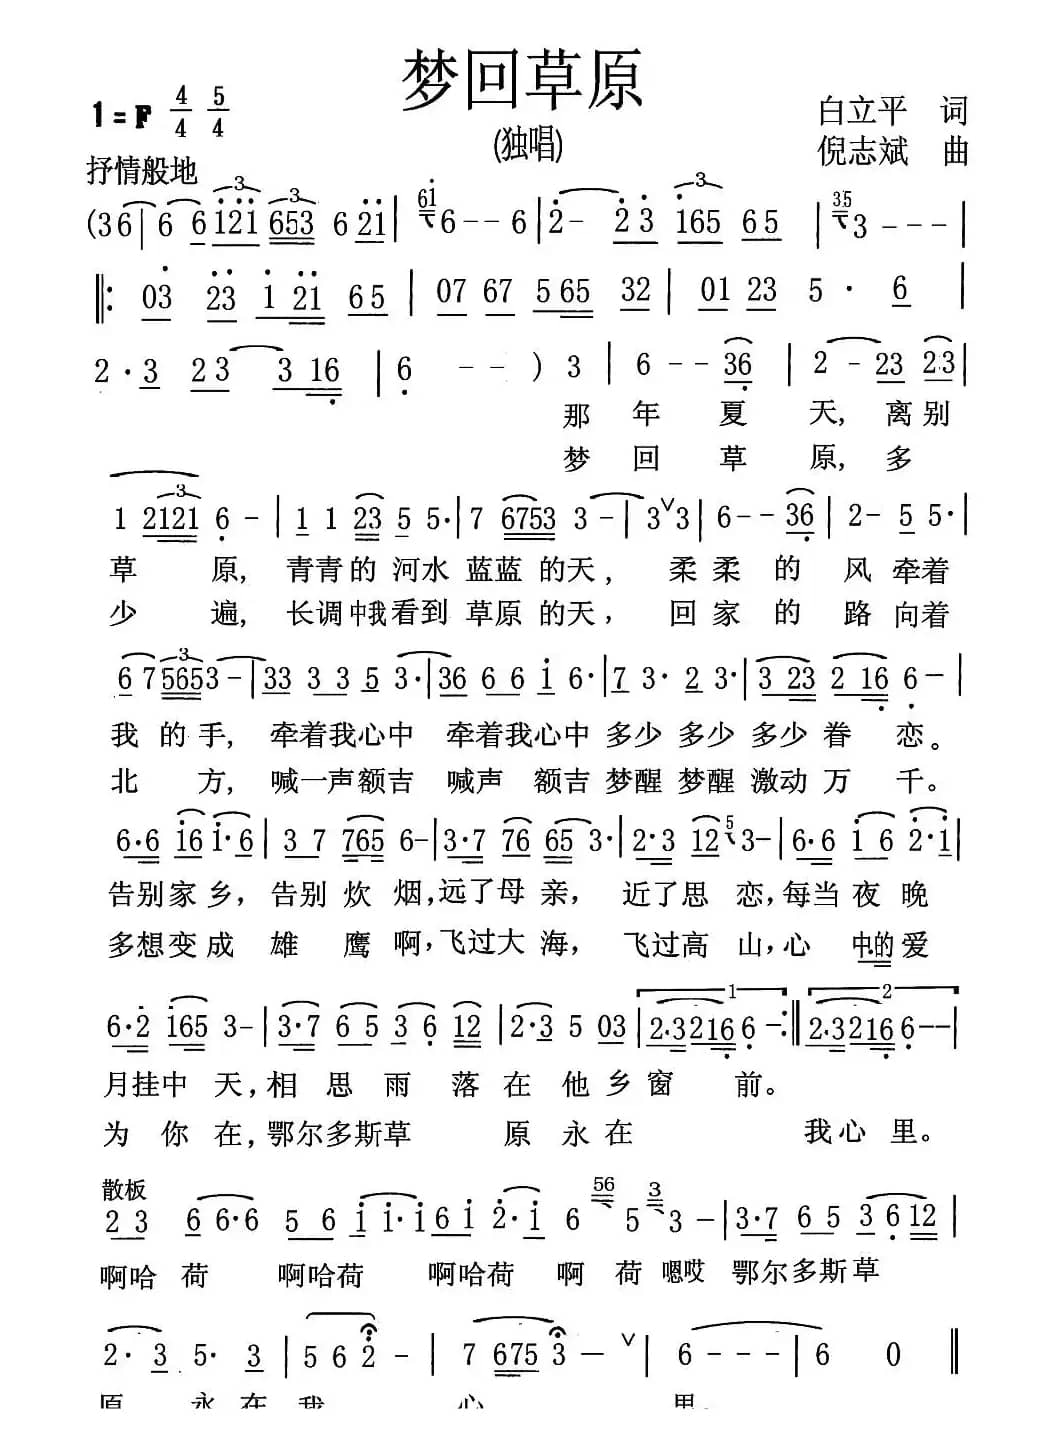 梦回草原
(独唱)
1=F 4/4 5/4
白立平 词
倪志斌 曲
抒情般地
(3 6 | 6 6 121 653 6 21 | 61 6 - - 6 | 2 - 2 3 165 6 5 | 35 3 - - - |
‖: 03 23 1 21 6 5 | 07 67 5 65 32 | 01 23 5 · 6 |
2 · 3 2 3 3 16 | 6 - - ) 3 | 6 - - 36 | 2 - 23 23 |
那 年 夏 天, 离别
梦 回 草 原, 多
1 2121 6 - | 1 1 23 5 5 · | 7 6753 3 - | 3 ∨ 3 | 6 - - 36 | 2 - 5 5 · |
草 原, 青青的 河水 蓝蓝 的天, 柔 柔 的 风 牵着
少 遍, 长调中我看到 草原 的天, 回 家 的 路 向着
6 7 5653 - | 33 3 3 5 3 · | 36 6 6 1 6 · | 7 3 · 2 3 · | 3 23 2 16 6 - |
我 的 手, 牵着我心中 牵着我心中 多少 多少 多少 眷 恋。
北 方, 喊一声额吉 喊声 额吉 梦醒 梦醒 激动 万 千。
6·6 16 1·6 | 3 7 765 6 - | 3·7 76 65 3· | 2·3 12 5 3 - | 6·6 1 6 2·1 |
告别家 乡, 告别 炊 烟,远了母 亲, 近了思 恋,每当 夜 晚
多想变 成 雄 鹰 啊,飞过大 海, 飞过高 山,心 中的 爱
6·2 165 3 - | 3·7 6 5 3 6 12 | 2·3 5 03 | 1 2·3 216 6 - :‖ 2 2·3 216 6 - - |
月挂中 天,相 思 雨 落 在 他 乡 窗 前。
为 你 在,鄂尔多斯草 原 永 在 我 心 里。
散板
2 3 6 6·6 5 6 1 1·1 6 1 2·1 6 56 5 3 3 - | 3·7 6 5 3 6 12 |
啊哈 荷 啊哈荷 啊哈荷 啊 荷 嗯哎 鄂尔多斯草
2· 3 5· 3 | 5 6 2 - | 7 675 3 - ∨ | 6 - - - | 6 0 ‖
原 永 在 我 心 里。